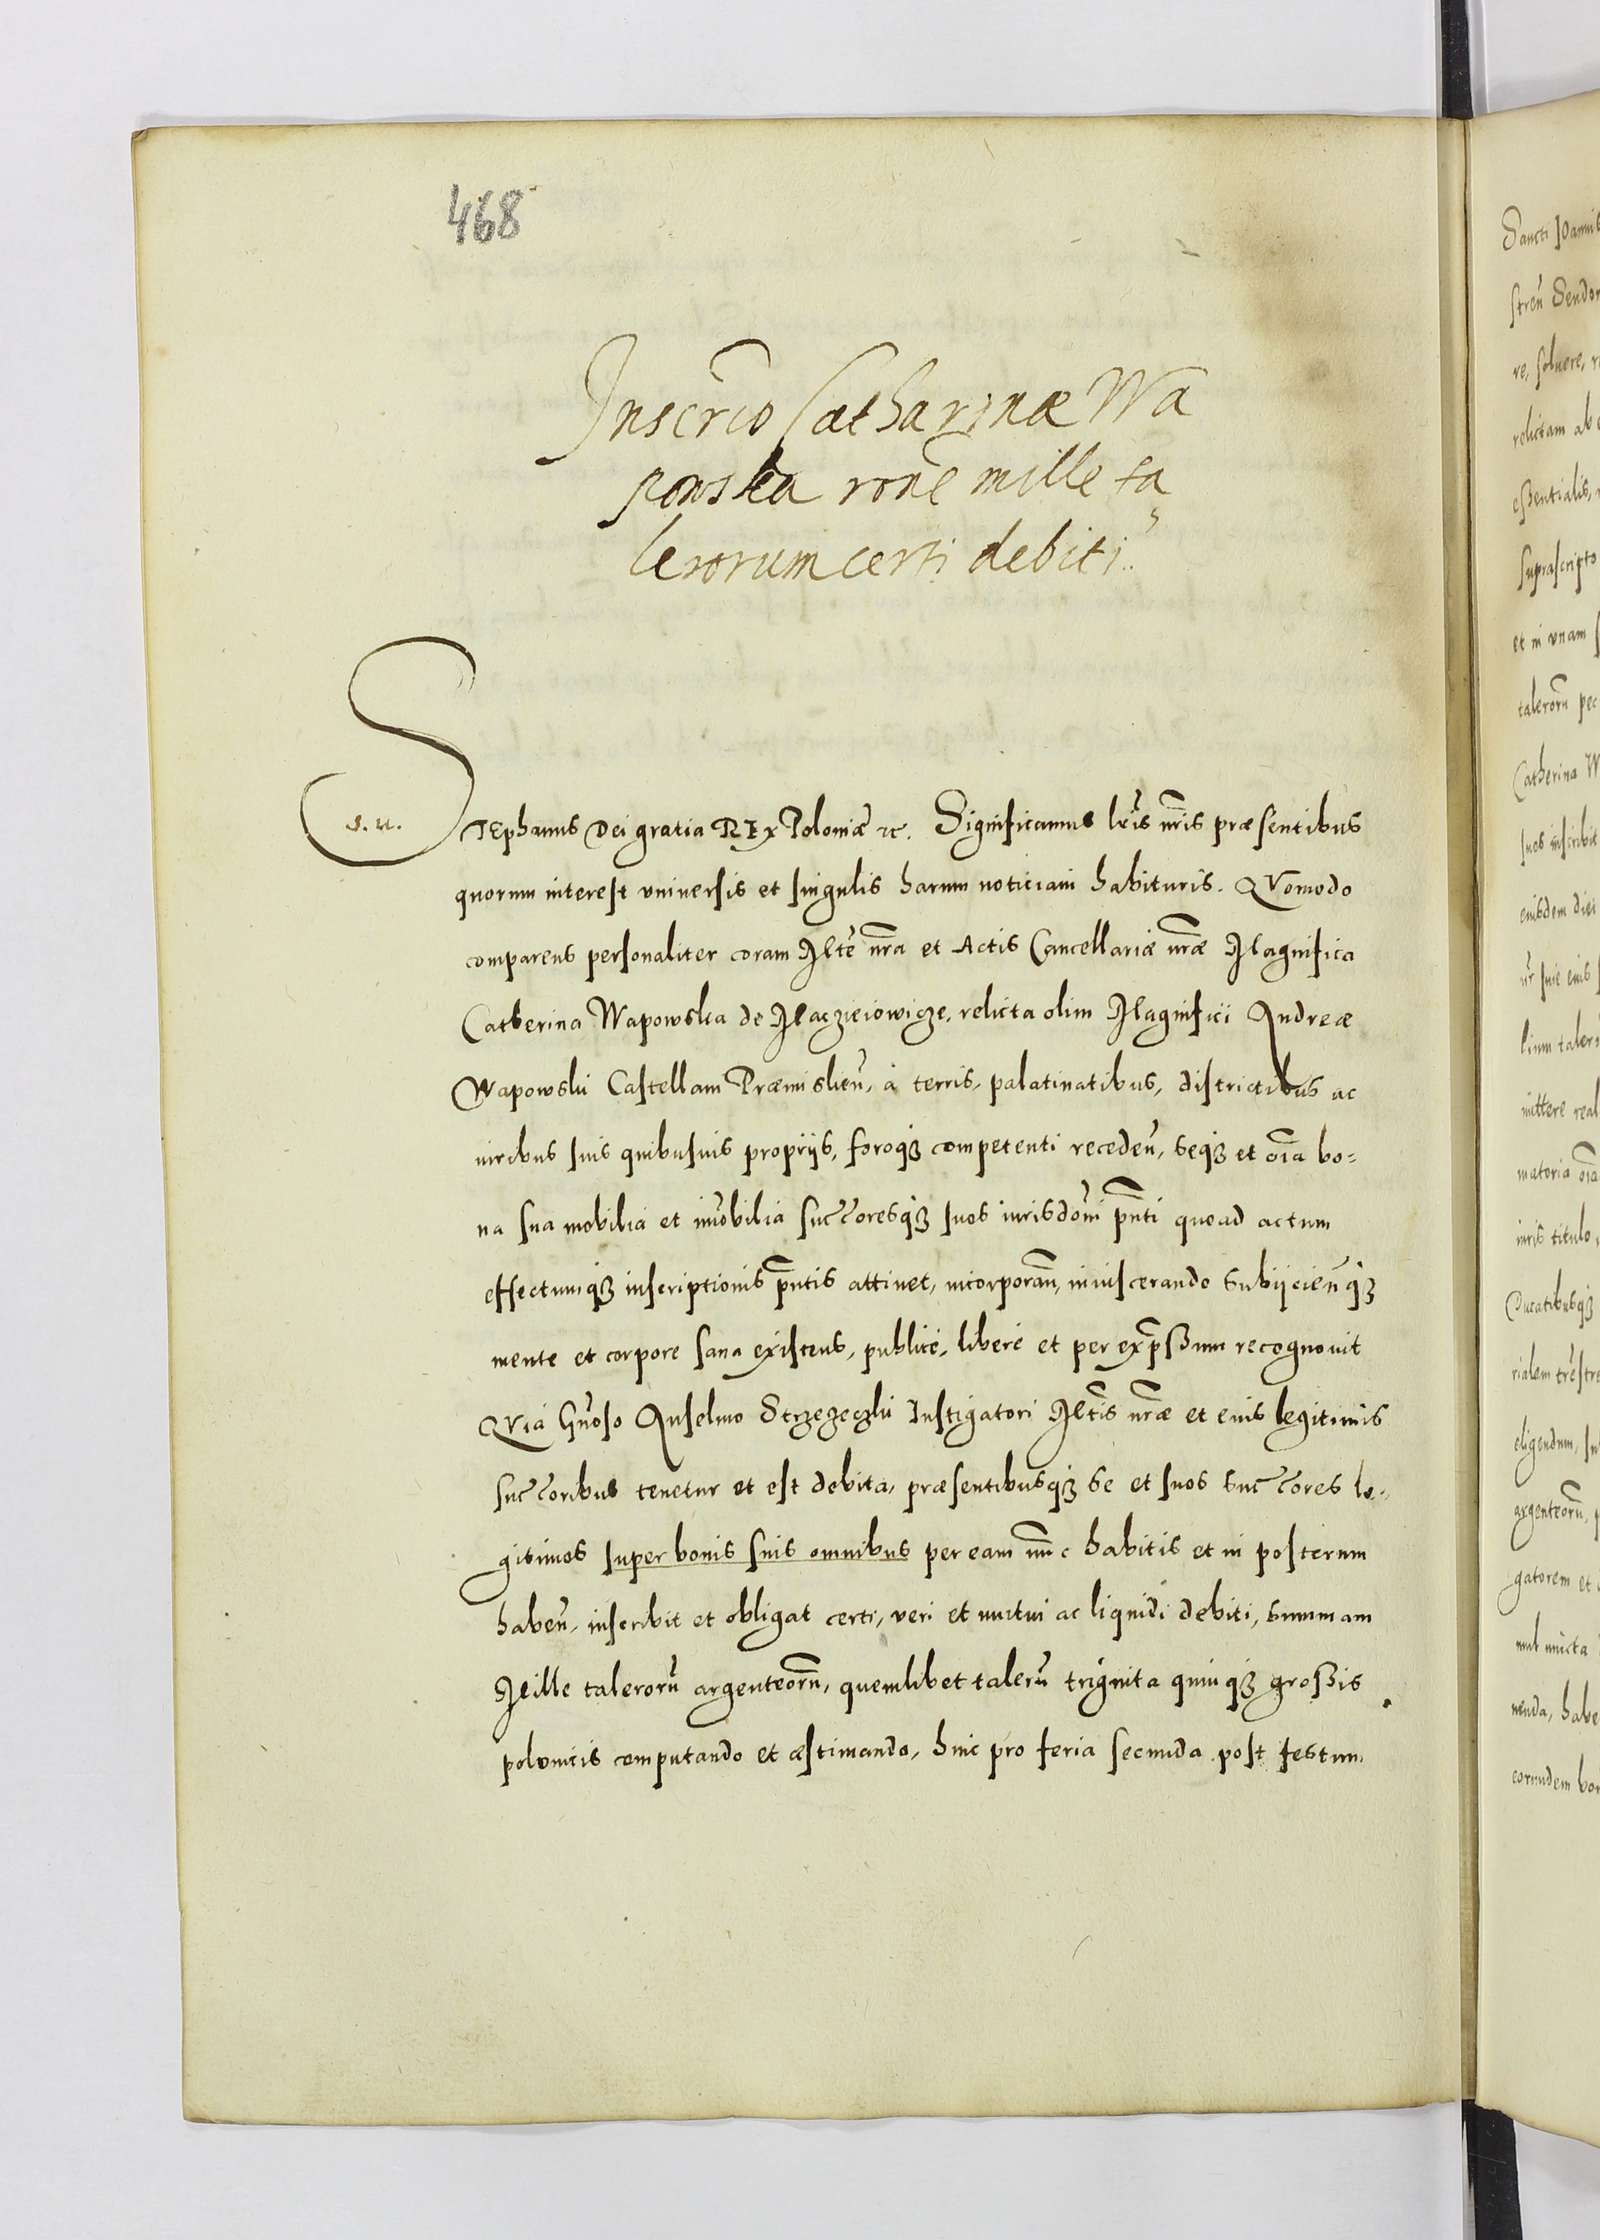 468
Inscrĩo Catharinæ Wa
powska rõne mille ta
lerorum certi debiti.
s. n.
STEphanus Dei gratia REx Poloniæ etc. Significamus lr̃is nr̃is præsentibus
quorum interest vniuersis et singulis harum noticiam habituris. QVomodo
comparens personaliter coram Mtẽ nr̃a et Actis Cancellariæ nr̃æ Magnifica
Catherina Wapowska de Maczieiowicze, relicta olim Magnifici Andreæ
Wapowski Castellani Præmislieñ, à terris, palatinatibus, districtibus ac
iuribus suis quibusuis proprijs, foroq3 competenti recedeñ, seq3 et oĩa bo=
na sua mobilia et im̃obilia succ̃oresq3 suos iurisdõni pñti quoad actum
effectumq3 inscriptionis pñtis attinet, incorporañ, inuiscerando subijcieñq3
mente et corpore sana existens, publicè, liberè et per exp̃ßum recognouit
QVia Gñoso Anselmo Strzezeczki Instigatori Mtĩs nr̃æ et eius legitimis
succ̃oribus tenetur et est debita, præsentibusq3 se et suos succ̃ores le=
gitimos super bonis suis omnibus per eam nunc habitis et in posterum
habeñ, inscribit et obligat certi, veri et mutui ac liquidi debiti, summam
Mille talerorũ argenteorũ, quemlibet talerũ triginta quinq3 großis
polonicis computando et æstimando, hinc pro feria secunda post festum
Sancti Joannis
streñ Sendo
re, soluere, r
relictam ab
eßentialis,
suprascripto
et in vnam
talerorũ pec
Catherina W
suos inscribit
eiusdem diei
siue eius
lium taler
mittere real
matoria oĩa
iuris titulo,
Ducatibusq3
rialem
eligendum,
argenteorũ,
gatorem et
mul iuncta
nenda, habe
eorundem bo